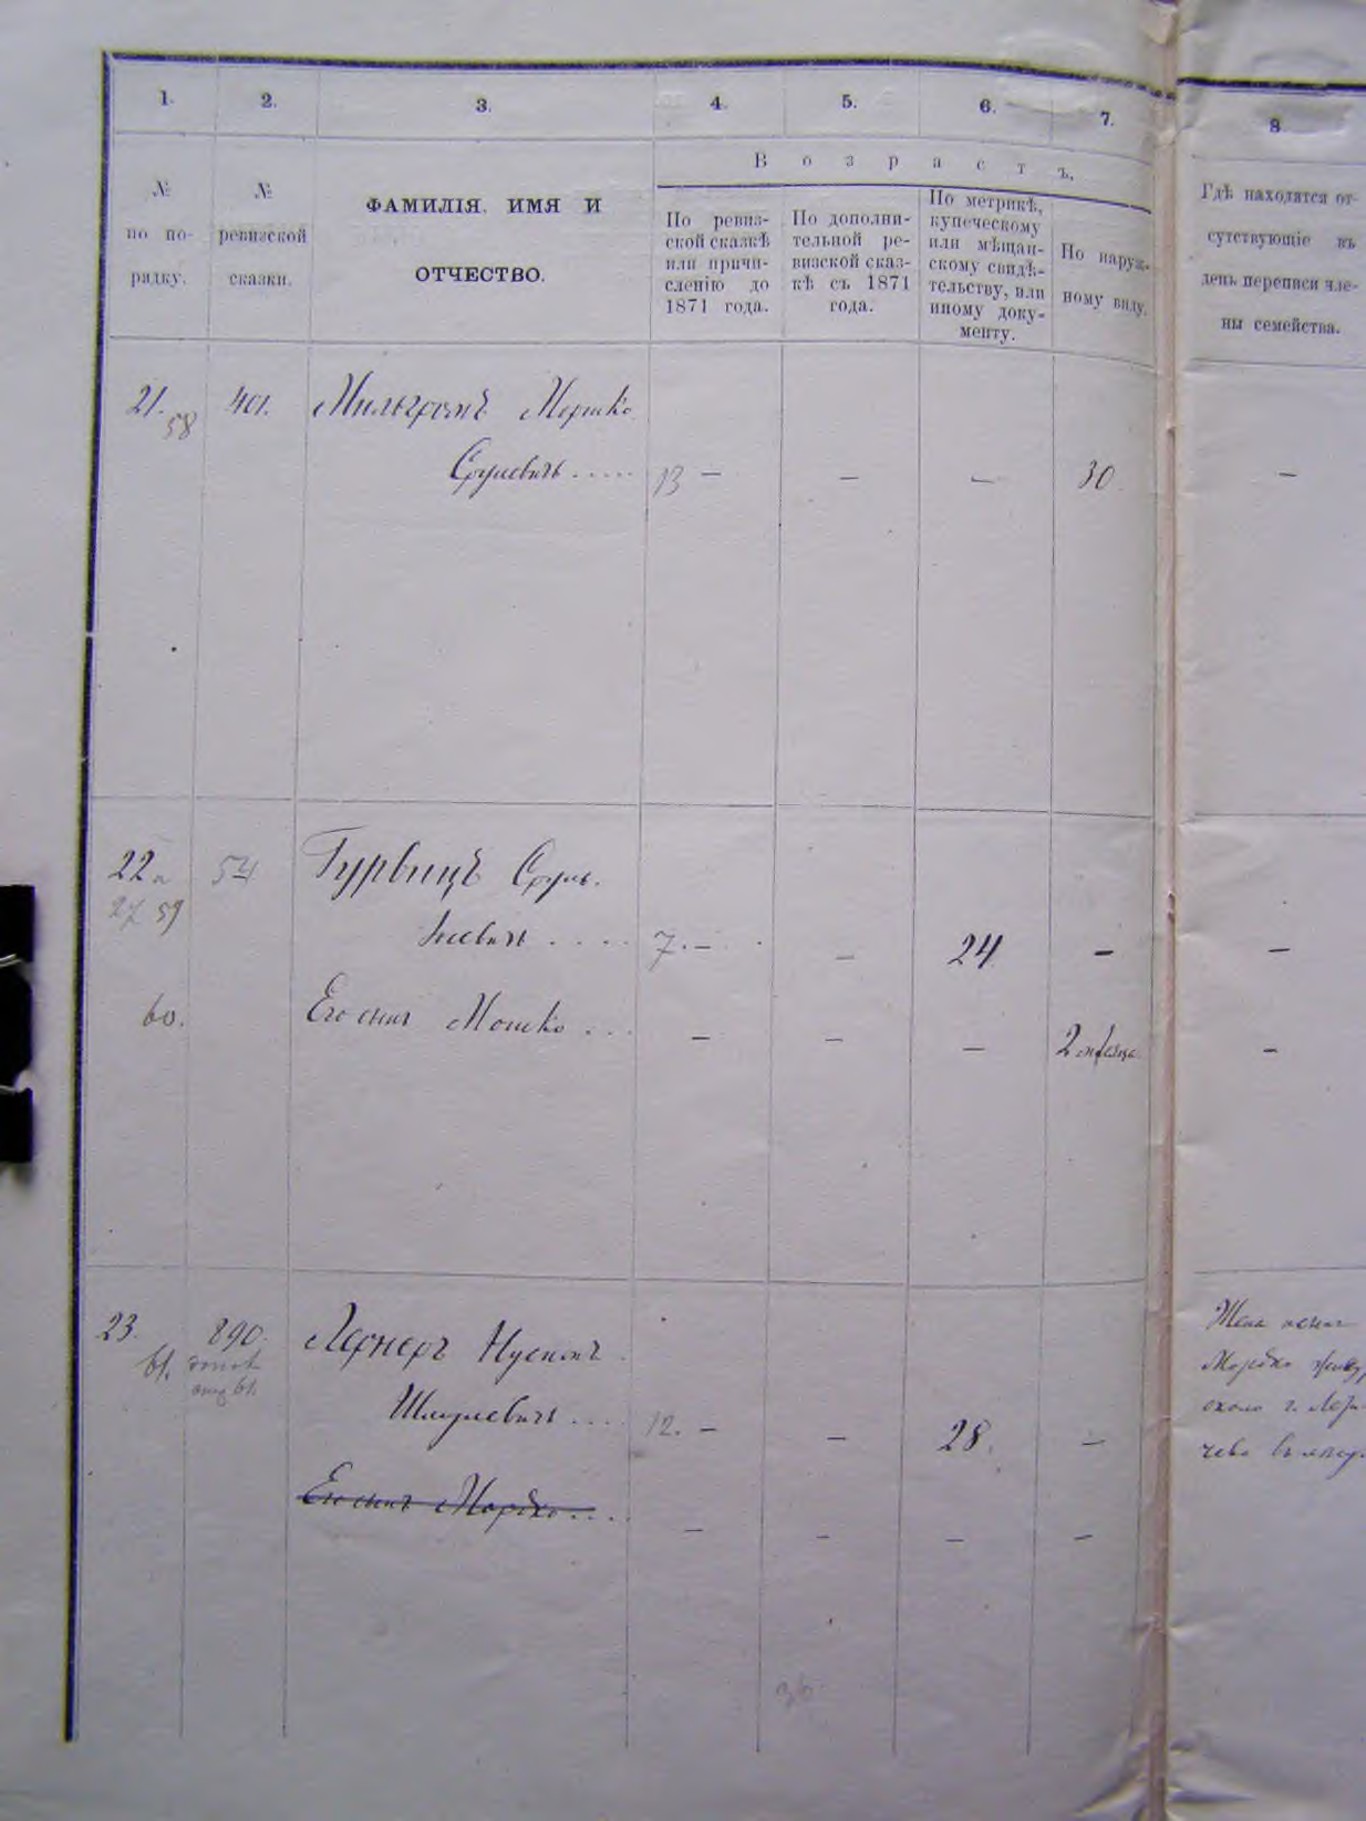 1. 2. 3. 4. 5. 6. 7. 8.
Возрастъ.
№
по по-
рядку.
№
ревизской
сказки.
ФАМИЛІЯ, ИМЯ И
ОТЧЕСТВО.
По ревиз-
ской сказкѣ
или причи-
сленію до
1871 года.
По дополни-
тельной ре-
визской сказ-
кѣ съ 1871
года.
По метрикѣ,
купеческому
или мѣщан-
скому свидѣ-
тельству, или
иному доку-
менту.
По наруж-
ному виду.
Гдѣ находятся от-
сутствующіе въ
день переписи чле-
ны семейства.
21. 401. Мильгромъ Мошко
58
Срулевичъ ..... 13 — — — 30 —
22 54 Гурвицъ Сруль
27 59
.... 7. — — 24 — —
60. Его сынъ Мошко ... — — — 2 мѣсяца —
23. 890. Лернеръ Нусимъ
61.
Шмулевичъ .... 12. — — 28. —
Его сынъ Мордко ... — — — —
Жена
Мордко
около г.
36